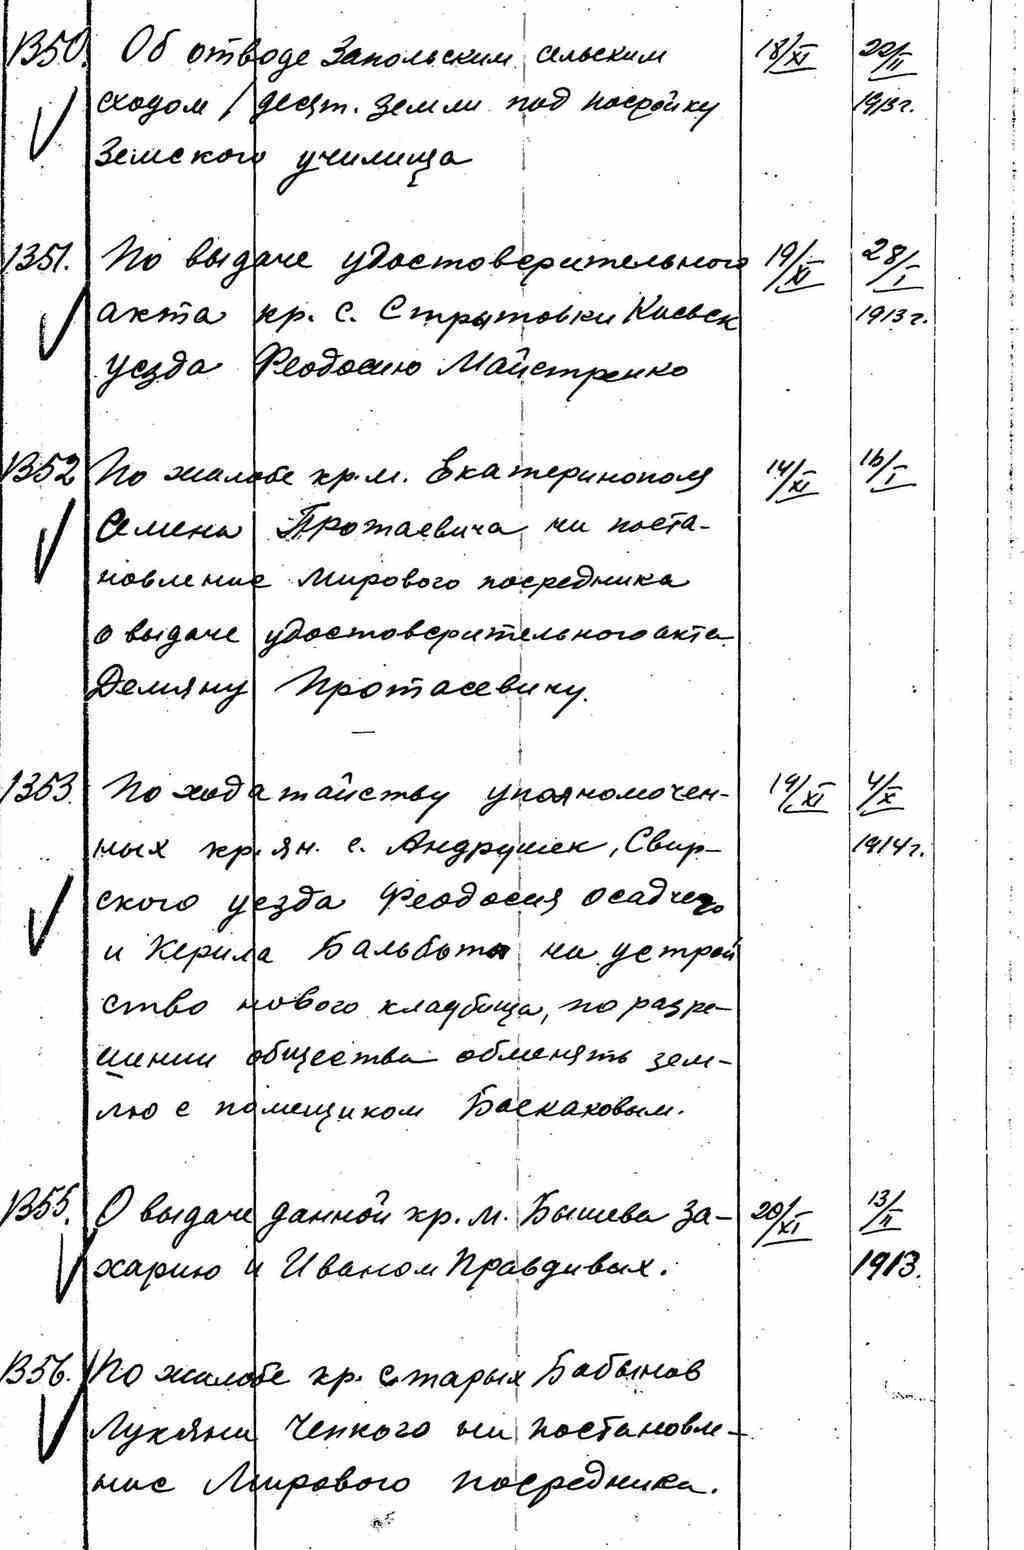 1350. Об отводе Запольским сельским 18/XI 22/II
сходом 1 десят. земли под постройку 1913г.
Земского училища
1351. По выдаче удостоверительного 19/XI 28/I
акта кр. с. Стрытовки Киевск 1913г.
уезда Феодосию Майстренко
1352 По жалобе кр. м. Екатеринополя 14/XI 16/I
Семена Протасевича на поста-
новление Мирового посредника
о выдаче удостоверительного акта
Демяну Протасевичу.
1353. По ходатайству уполномочен- 19/XI 4/X
ных кр.ян. с. Андрушек, Свир- 1914г.
ского уезда Феодосия Осадчего
и Керила Бальботы на устрой
ство нового кладбища, по разре-
шении общества обменять зем-
лю с помещиком Баскаковым.
1355. О выдаче данной кр. м. Бышева За- 20/XI 13/II
харию и Иваном Правдивых. 1913.
1356. По жалобе кр. Старых Бабынов
Лукяна Чепкого на постановле-
ние Мирового посредника.